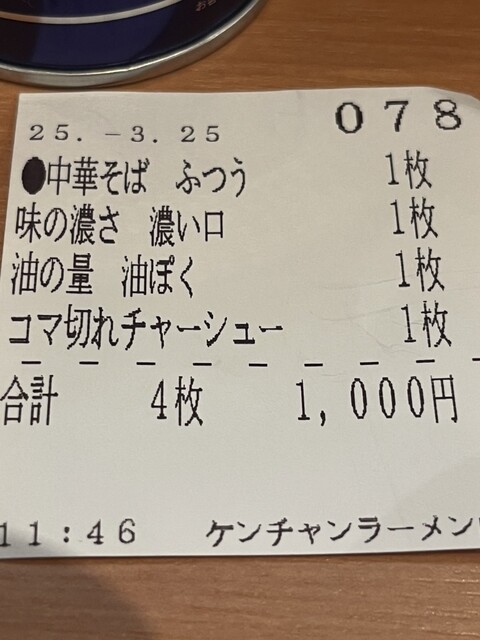 078
25.-3.25
●中華そば ふつう 1枚
味の濃さ 濃い口 1枚
油の量 油ぽく 1枚
コマ切れチャーシュー 1枚
合計 4枚 1,000円
11:46 ケンチャンラーメン